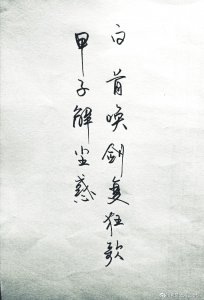 白首唤剑复狂歌
甲子解尘惑